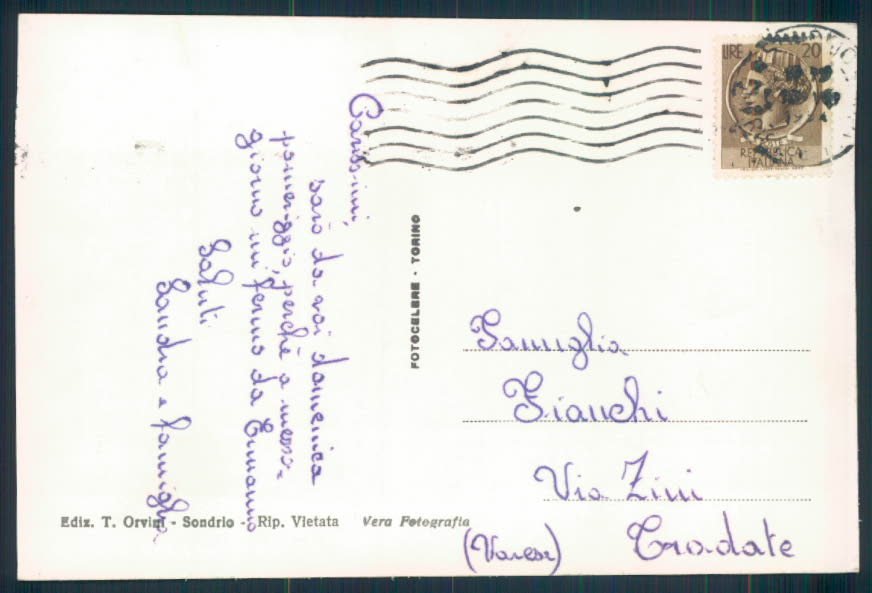 Carissimi,
sarò da voi domenica
pomeriggio, perchè a mezzo-
giorno mi fermo da Ermanno
Saluti
Sandra e famiglia
FOTOCELERE - TORINO
LIRE 20
REPUBBLICA
ITALIANA
Famiglia
Bianchi
Via Zini
Tradate
(Varese)
Ediz. T. Orvini - Sondrio - Rip. Vietata Vera Fotografia